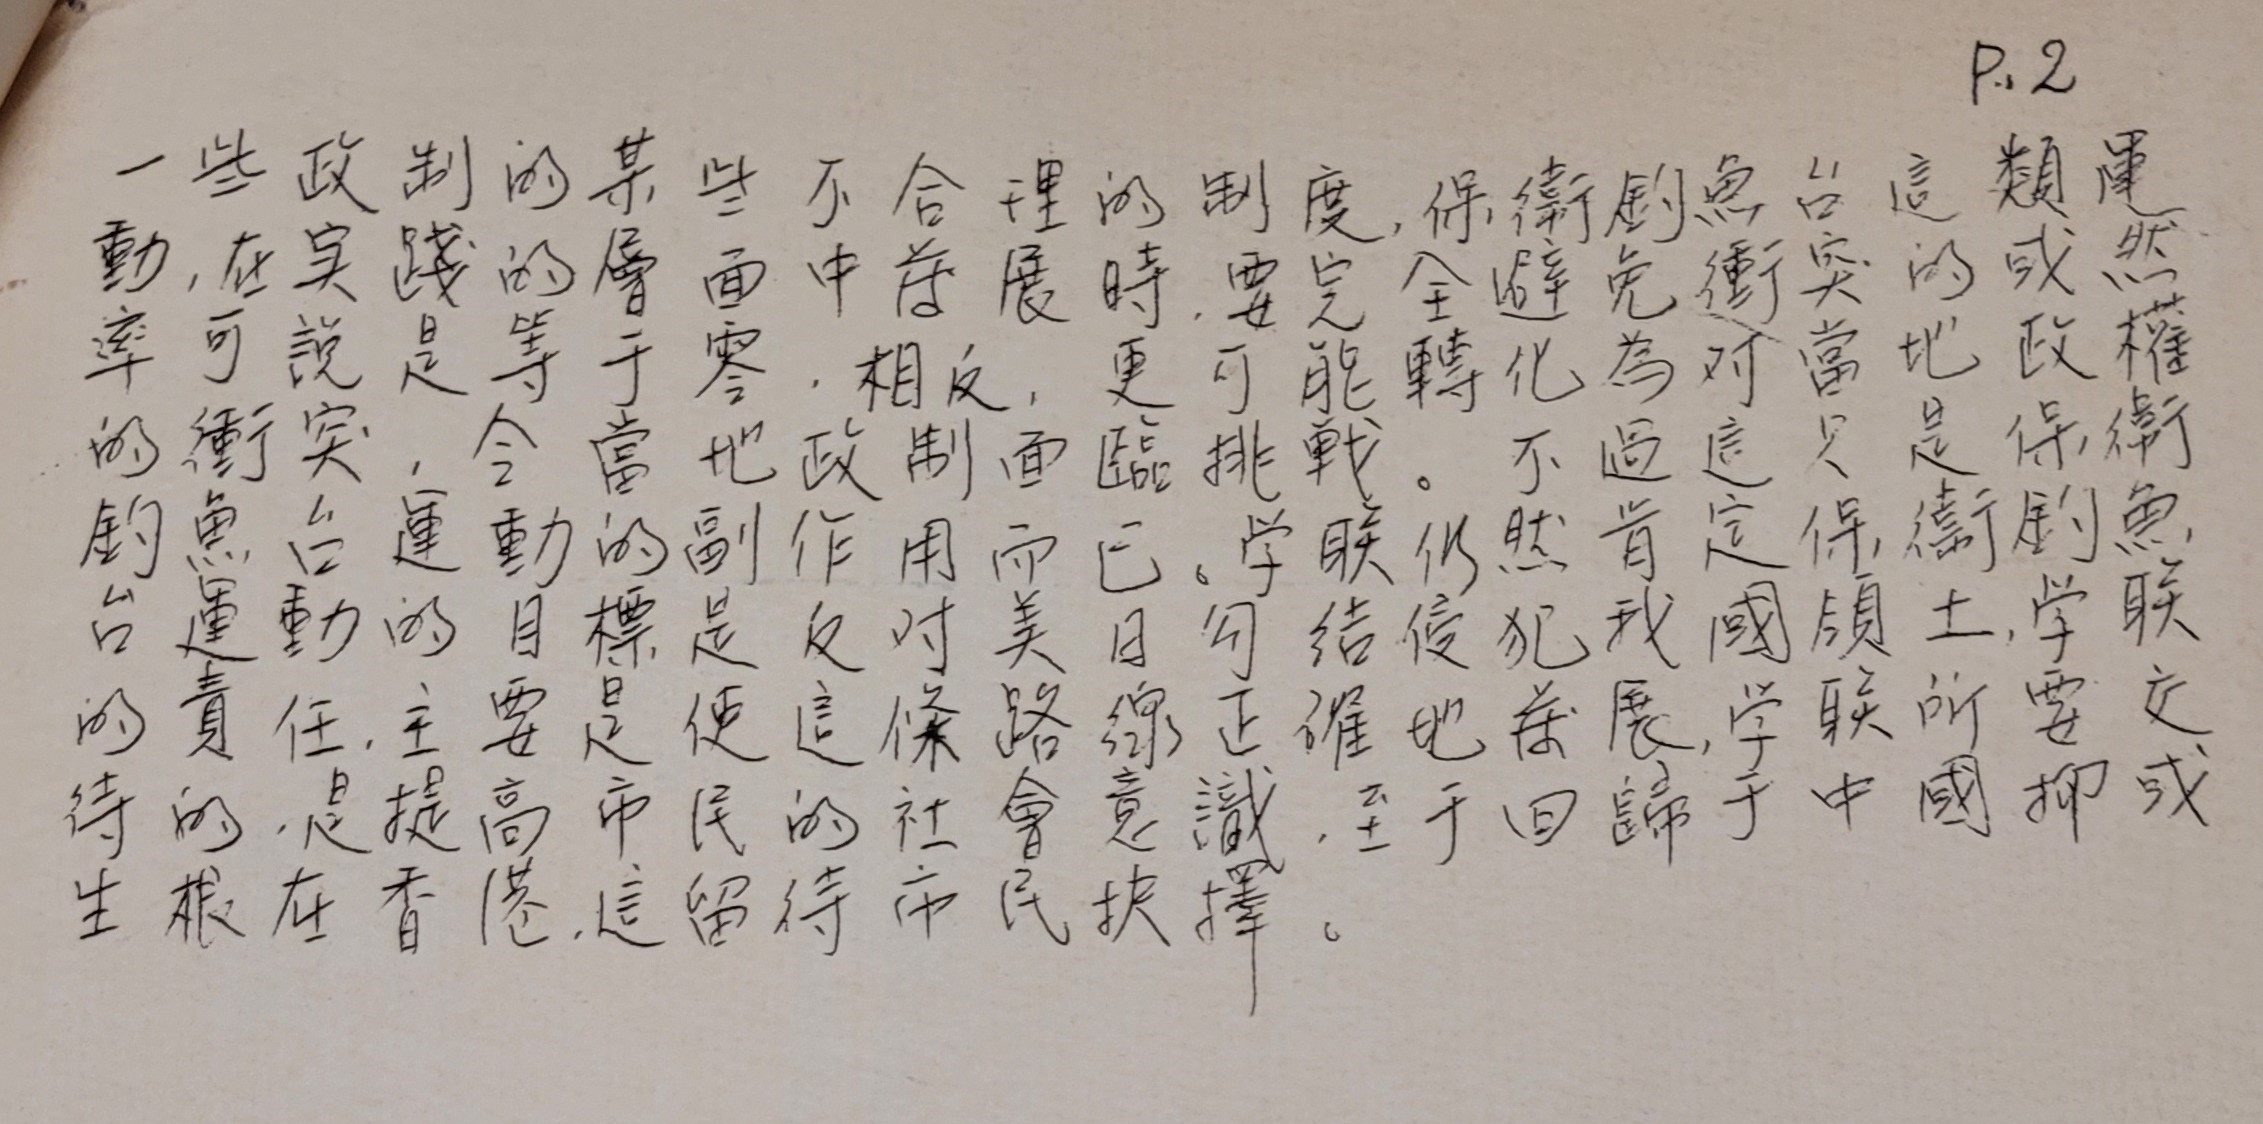 P.2
一些政制的某些不合理的制度,保衛釣魚台這類運
動,在实踐的層面中發展時,要完全避免衝突的或然
率可説是等于零,相反,更可能轉化為对當地政權
的衝突,令當地政制面臨挑戰。不過這只是保衛
釣魚台運動的副作用而已。学联仍然肯定保衛釣魚
台運動的目標是反对美日勾结侵犯我國領土,学联
的責任,主要是使這條路線正確地發展,学联所要交
待的,是提高市民的社會意識,至于回歸于中國抑或
生根在香港,這留待市民抉擇。